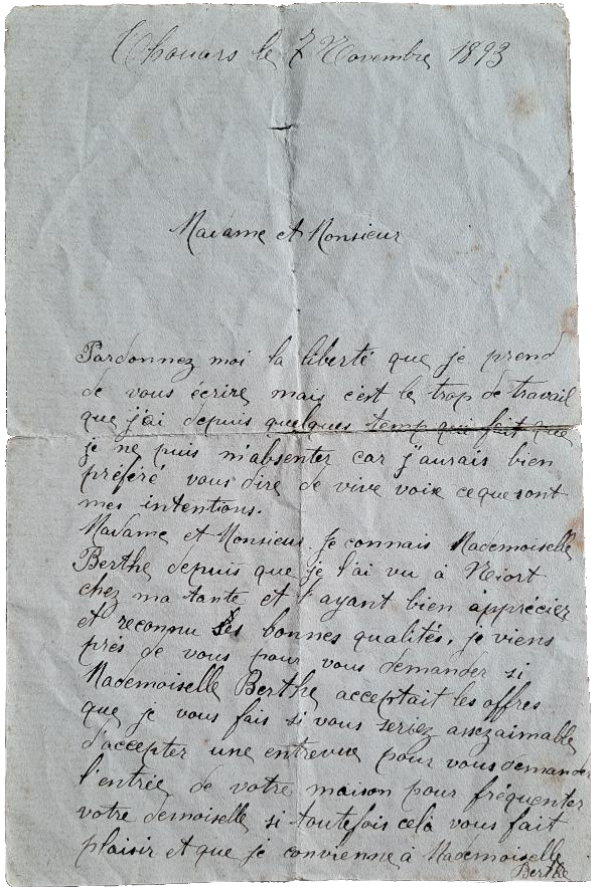 Thouars le 7 Novembre 1893
Madame et Monsieur
Pardonnez moi la liberté que je prend
de vous écrire mais c'est le trop de travail
que j'ai depuis quelques temp qui fait que
je ne puis m'absenter car j'aurais bien
préféré vous dire de vive voix ce que sont
mes intentions.
Madame et Monsieur je connais Mademoiselle
Berthe depuis que je l'ai vu à Niort
chez ma tante et l'ayant bien appréciez
et reconnu ses bonnes qualités, je viens
près de vous pour vous demander si
Mademoiselle Berthe acceptait les offres
que je vous fais si vous seriez assez aimable
d'accepter une entrevue pour vous demander
l'entrée de votre maison pour fréquenter
votre demoiselle si toutefois celà vous fait
plaisir et que je convienne à Mademoiselle
Berthe